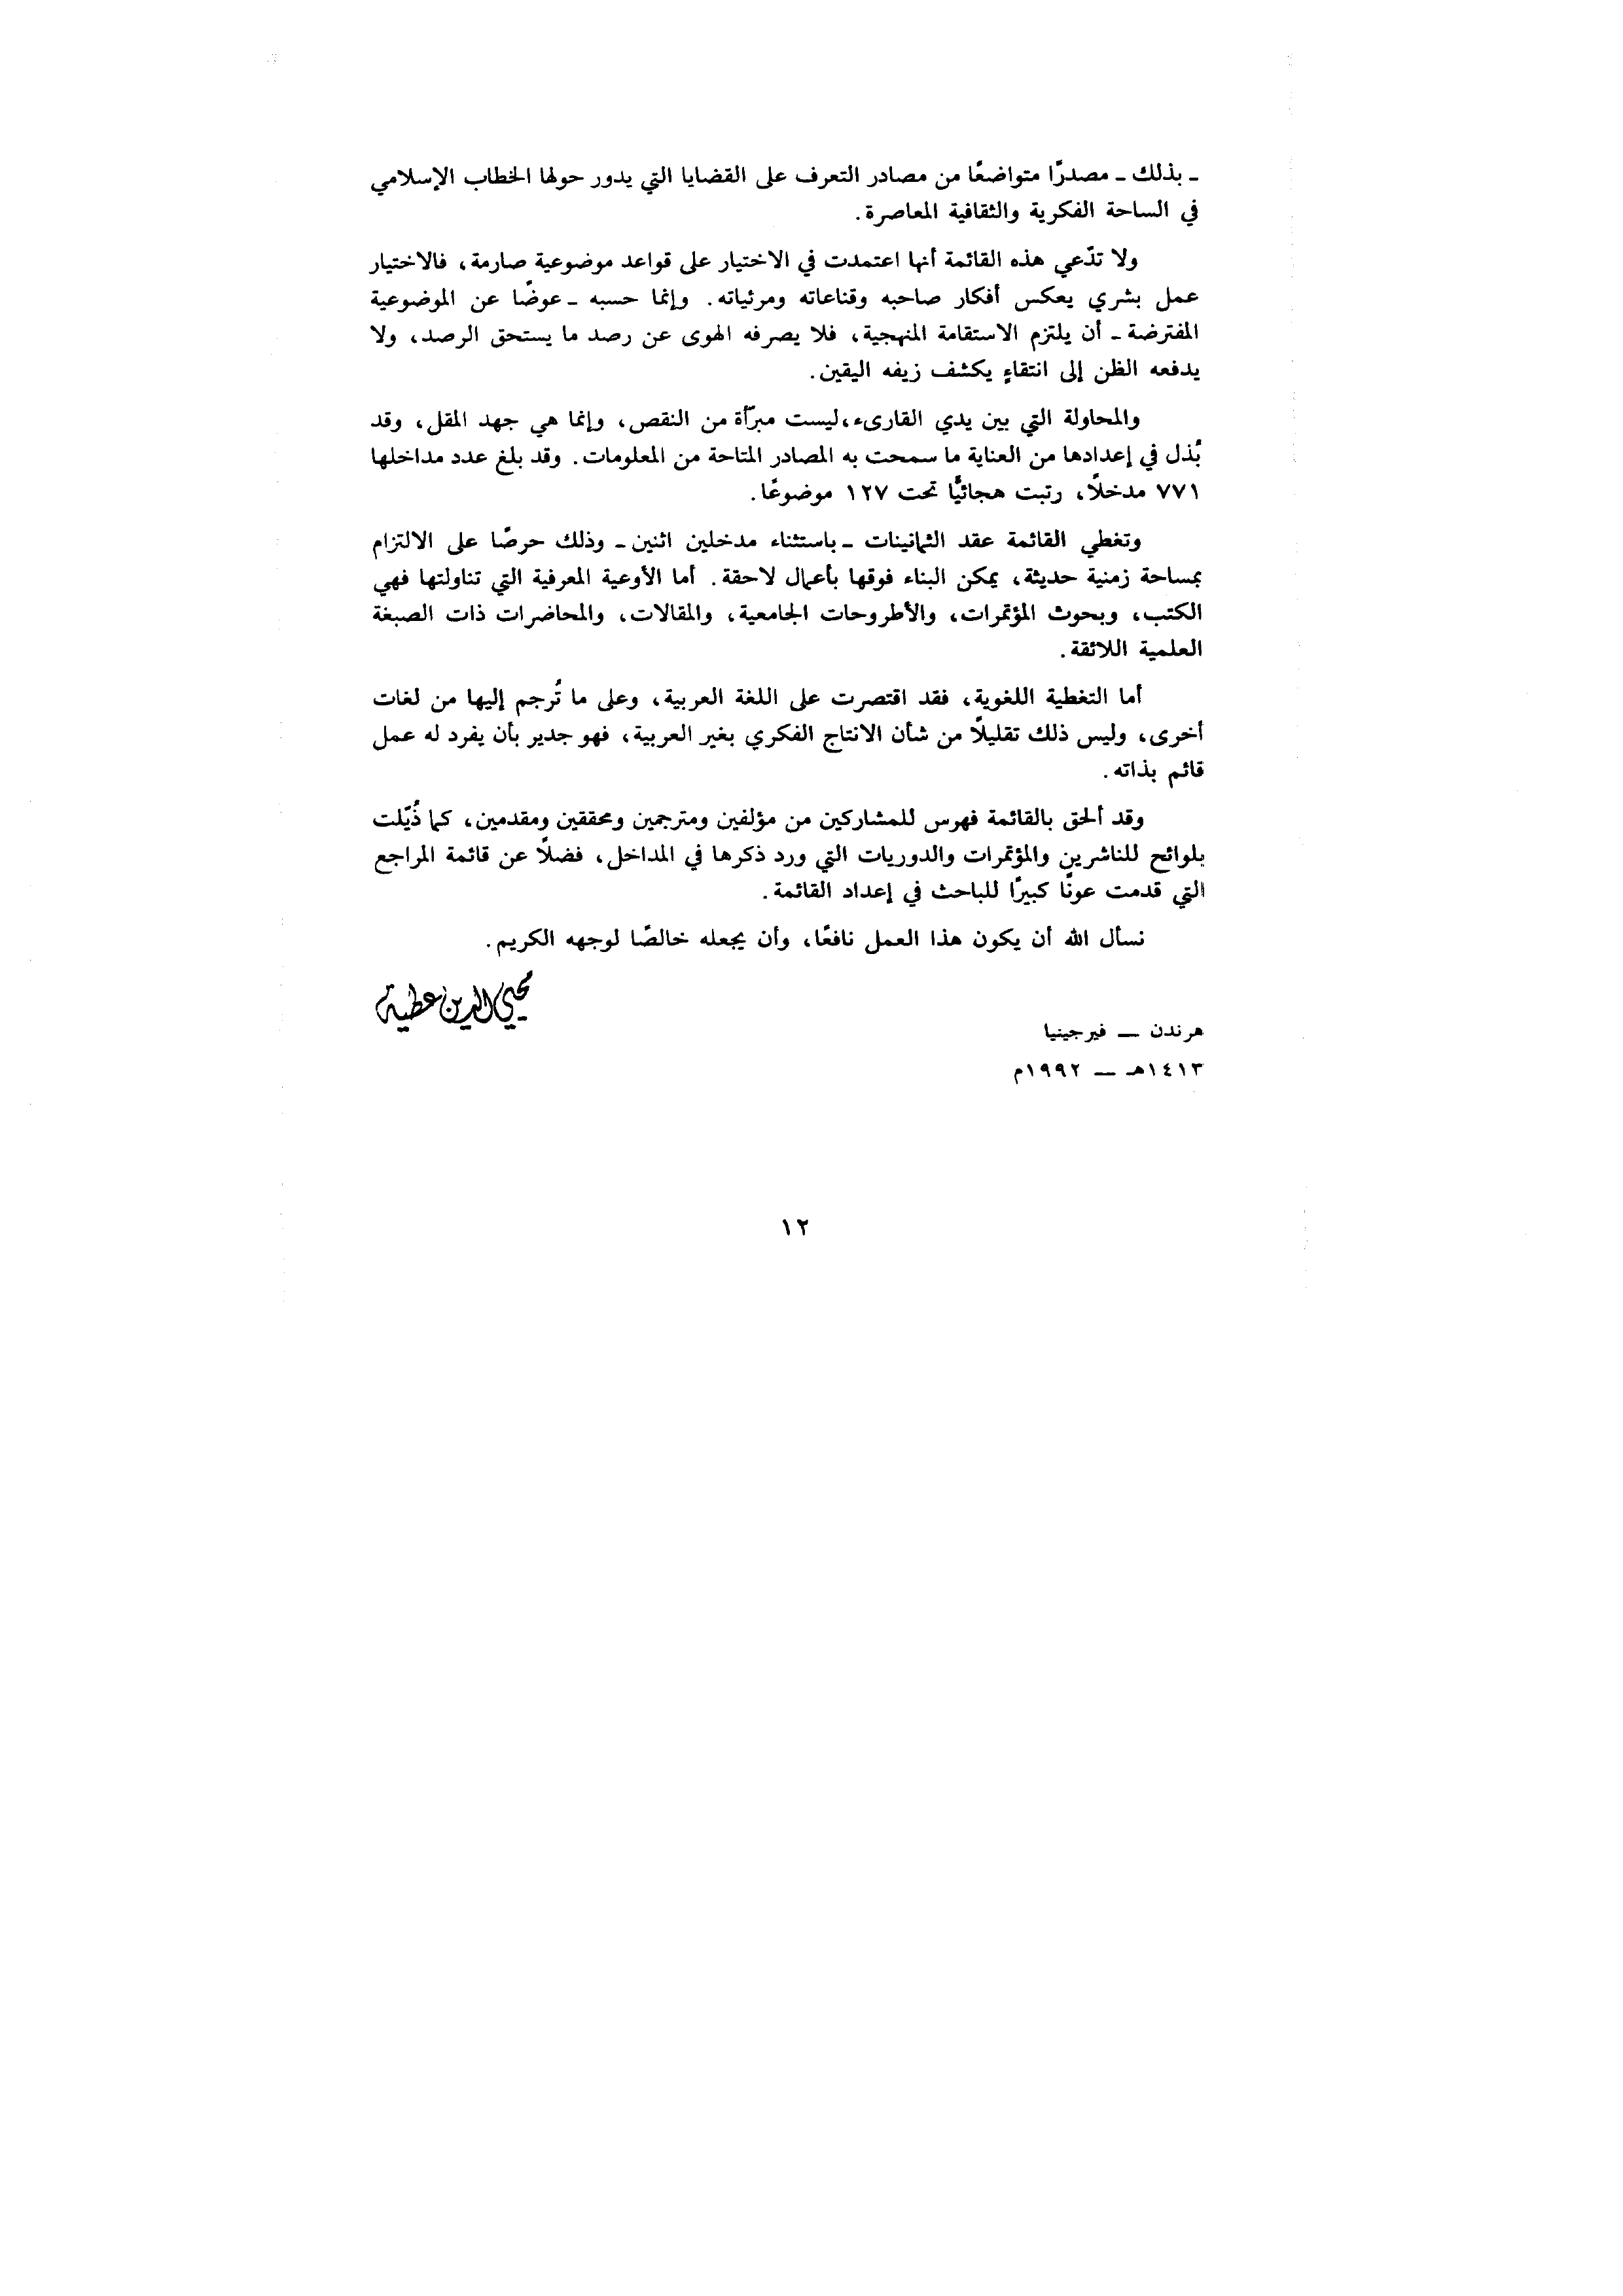 ـ بذلك ـ مصدرًا متواضعًا من مصادر التعرف على القضايا التي يدور حولها الخطاب الإسلامي
في الساحة الفكرية والثقافية المعاصرة.
ولا تدّعي هذه القائمة أنها اعتمدت في الاختيار على قواعد موضوعية صارمة، فالاختيار
عمل بشري يعكس أفكار صاحبه وقناعاته ومرئياته. وإنما حسبه ـ عوضًا عن الموضوعية
المفترضة ـ أن يلتزم الاستقامة المنهجية، فلا يصرفه الهوى عن رصد ما يستحق الرصد، ولا
يدفعه الظن إلى انتقاءٍ يكشف زيفه اليقين.
والمحاولة التي بين يدي القارىء، ليست مبرّأة من النقص، وإنما هي جهد المقل، وقد
بُذل في إعدادها من العناية ما سمحت به المصادر المتاحة من المعلومات. وقد بلغ عدد مداخلها
٧٧١ مدخلاً، رتبت هجائيًّا تحت ١٢٧ موضوعًا.
وتغطي القائمة عقد الثمانينات ـ باستثناء مدخلين اثنين ـ وذلك حرصًا على الالتزام
بمساحة زمنية حديثة، يمكن البناء فوقها بأعمال لاحقة. أما الأوعية المعرفية التي تناولتها فهي
الكتب، وبحوث المؤتمرات، والأطروحات الجامعية، والمقالات، والمحاضرات ذات الصبغة
العلمية اللائقة.
أما التغطية اللغوية، فقد اقتصرت على اللغة العربية، وعلى ما تُرجم إليها من لغات
أخرى، وليس ذلك تقليلاً من شأن الانتاج الفكري بغير العربية، فهو جدير بأن يفرد له عمل
قائم بذاته.
وقد ألحق بالقائمة فهرس للمشاركين من مؤلفين ومترجمين ومحققين ومقدمين، كما ذُيّلت
بلوائح للناشرين والمؤتمرات والدوريات التي ورد ذكرها في المداخل، فضلاً عن قائمة المراجع
التي قدمت عونًا كبيرًا للباحث في إعداد القائمة.
نسأل الله أن يكون هذا العمل نافعًا، وأن يجعله خالصًا لوجهه الكريم.
محيي الدين عطية
هرندن — فيرجينيا
١٤١٣هـ — ١٩٩٢م
١٢